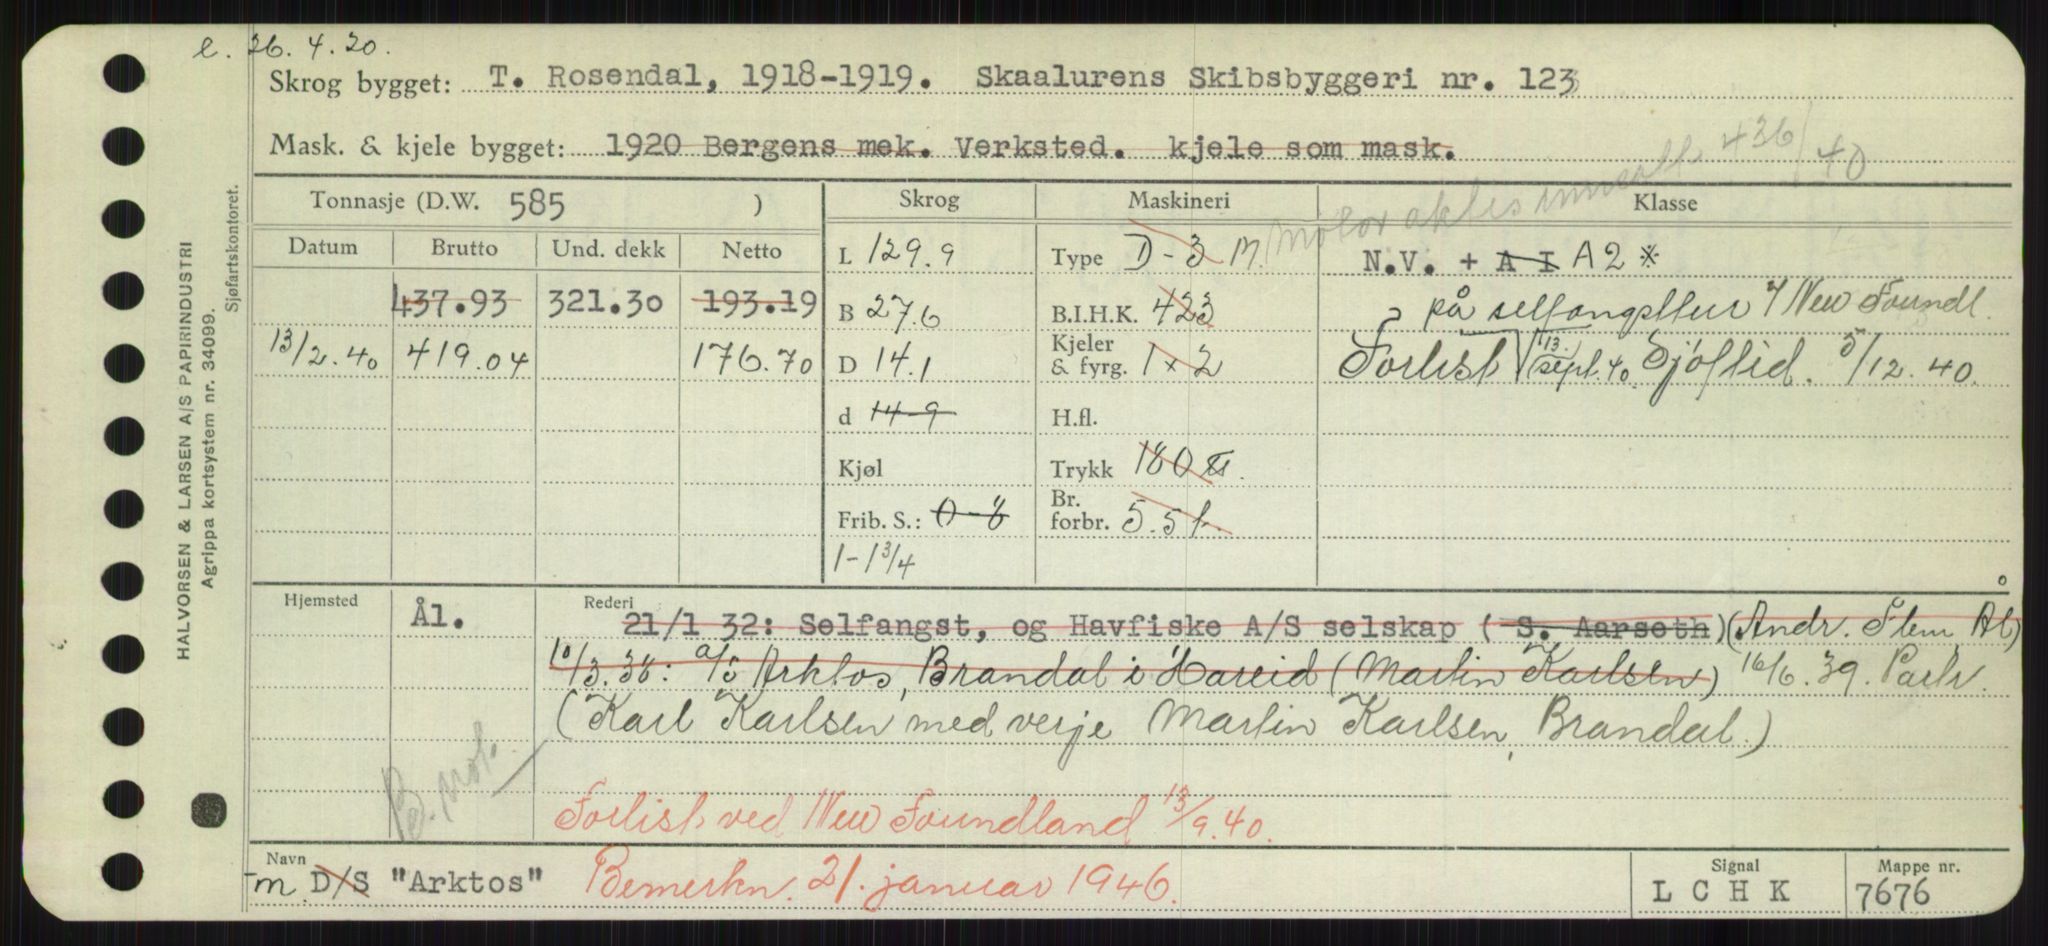 e. 26.4.20.
Skrog bygget: T. Rosendal, 1918-1919. Skaalurens Skibsbyggeri nr. 123
Mask. & kjele bygget: 1920 Bergens mek. Verksted. kjele som mask.
436/40
Tonnasje (D.W. 585 ) Skrog Maskineri Klasse
Datum Brutto Und. dekk Netto L 129.9 Type D-3 M. N.V. + A I A2 *
437.93 321.30 193.19 B 27.6 B.I.H.K. 423 på selfangsttur v/ New Foundl.
13/2.40 419.04 176.70 D 14.1 Kjeler & fyrg. 1 x 2 Forlist 13. sept. 40. Sjøftid. 5/12.40.
d 14-9 H.fl.
Kjøl Trykk 180 lb.
Frib. S.: 0-8 Br. forbr. 5.5 t.
1-1 3/4
Hjemsted Ål. Rederi
21/1 32: Selfangst, og Havfiske A/S selskap ( S. Aarseth) (Andr. Flem, Ål)
10/3.38: a/s Arktos, Brandal i Hareid (Martin Karlsen) 16/6.39. Partr.
(Karl Karlsen med verje Martin Karlsen, Brandal.)
B. not.
Forlist ved New Foundland 13/9.40.
Navn Signal Mappe nr.
m D/S "Arktos" Bemerkn. 21. januar 1946. L C H K 7676
HALVORSEN & LARSEN A/S PAPIRINDUSTRI
Agrippa kortsystem nr. 34099.
Sjøfartskontoret.